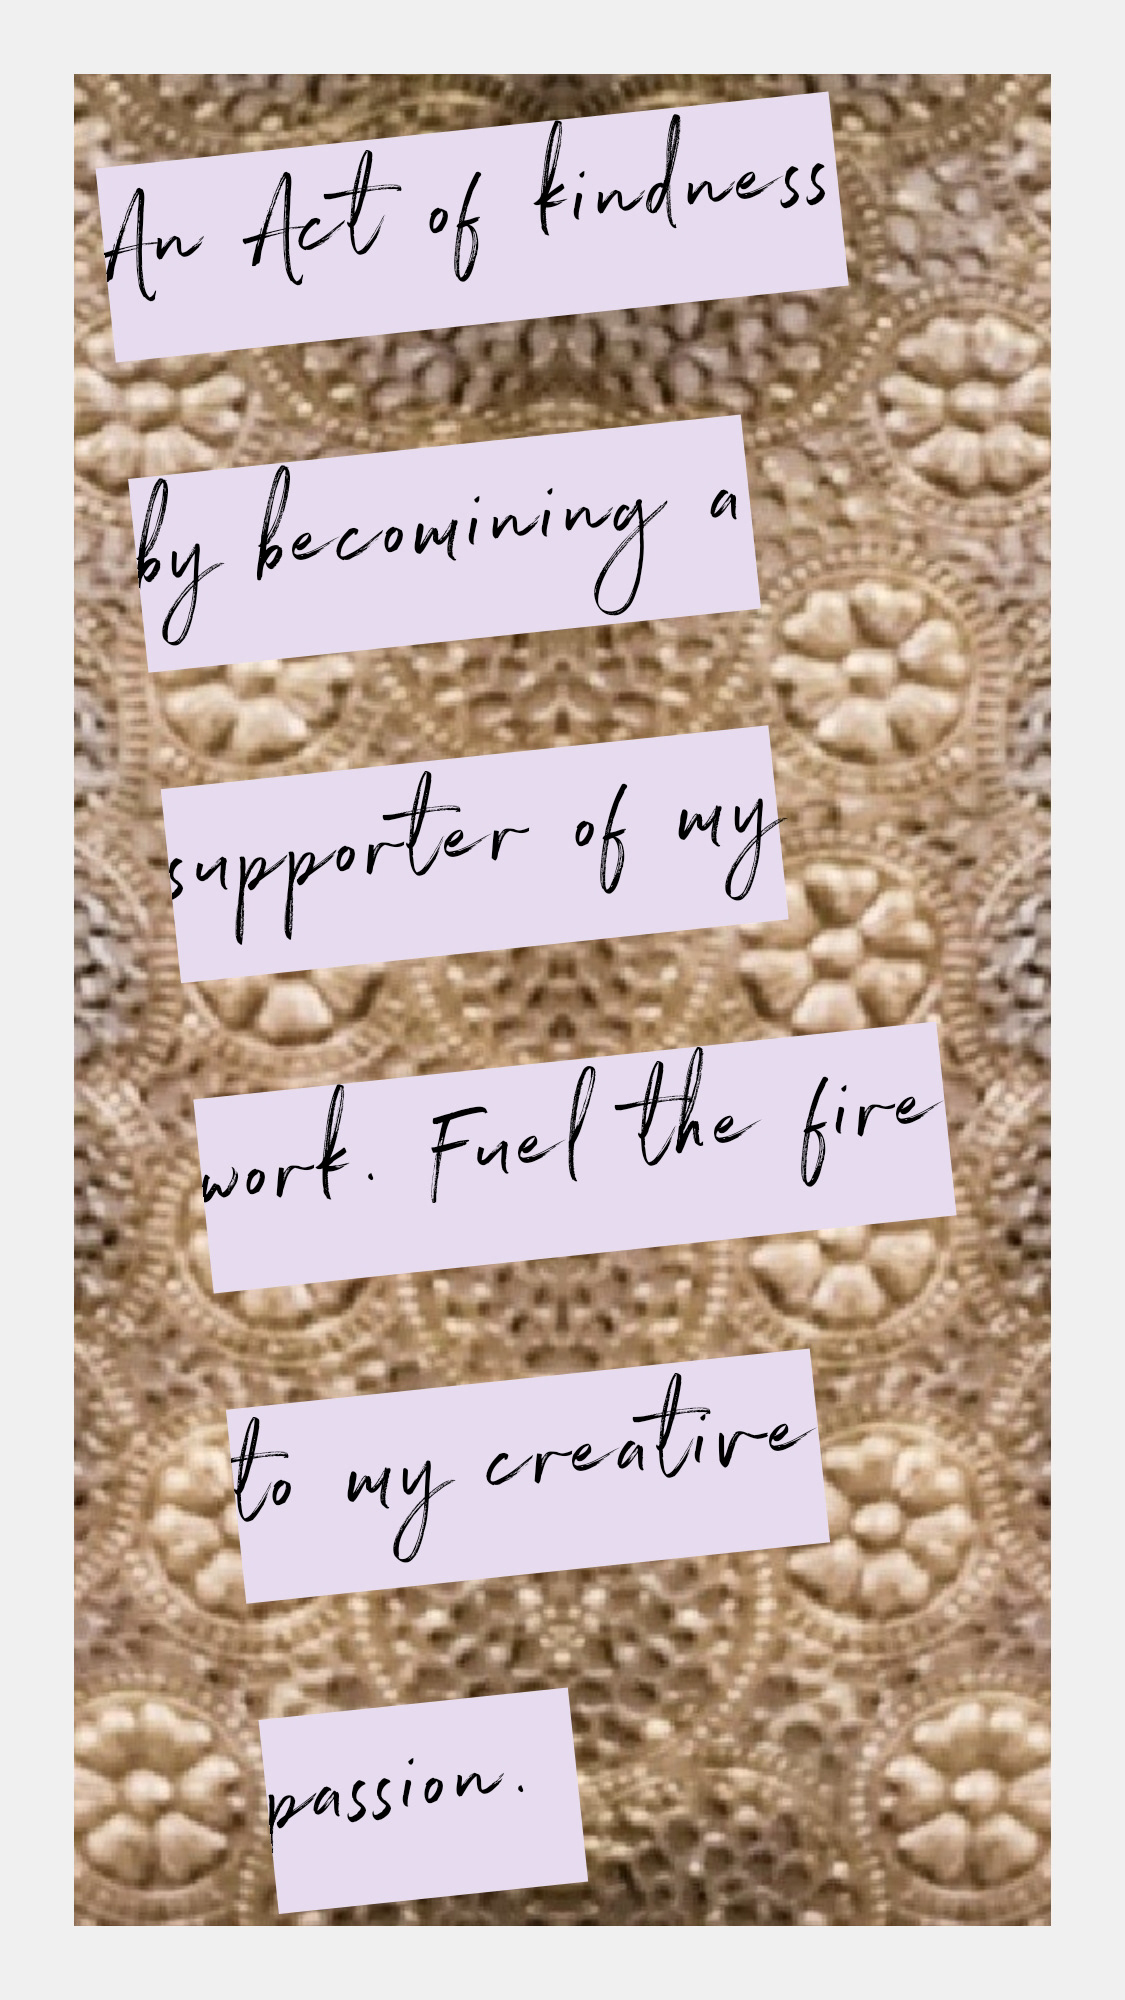 An Act of kindness
by becomining a
supporter of my
work. Fuel the fire
to my creative
passion.